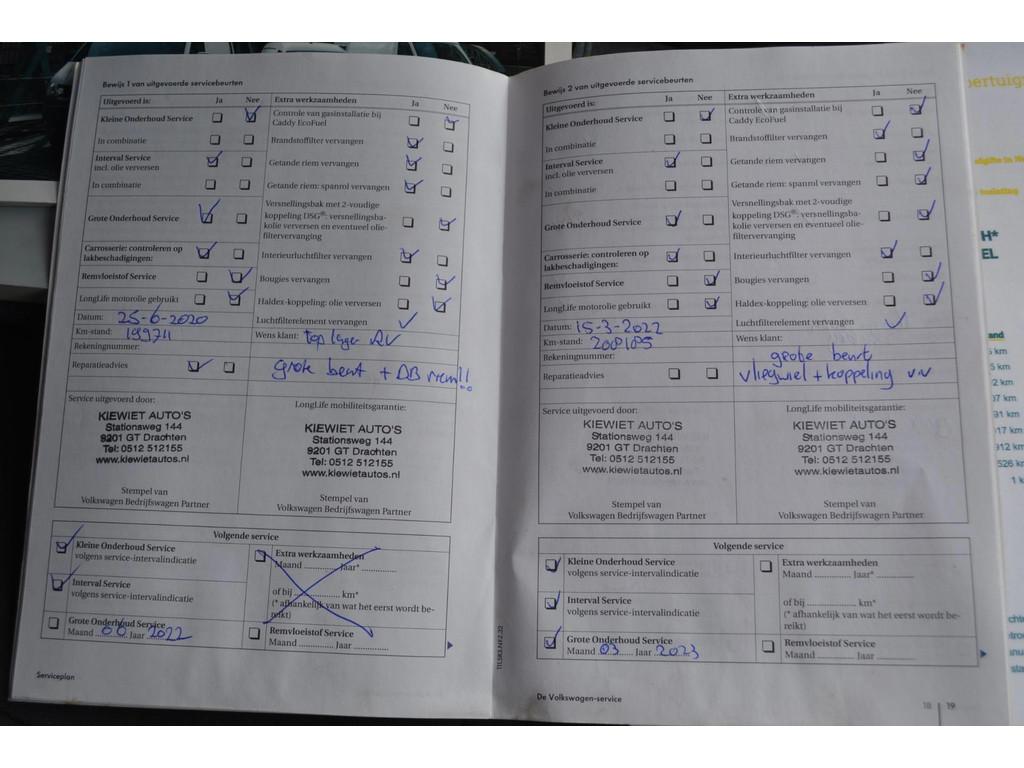 Bewijs 1 van uitgevoerde servicebeurten
Uitgevoerd is: Ja Nee Extra werkzaamheden Ja Nee
Kleine Onderhoud Service
Controle van gasinstallatie bij
Caddy EcoFuel
In combinatie
Brandstoffilter vervangen
Interval Service
incl. olie verversen
Getande riem vervangen
In combinatie
Getande riem: spanrol vervangen
Grote Onderhoud Service
Versnellingsbak met 2-voudige
koppeling DSG®: versnellingsba-
kolie verversen en eventueel olie-
filtervervanging
Carrosserie: controleren op
lakbeschadigingen:
Interieurluchtfilter vervangen
Remvloeistof Service
Bougies vervangen
LongLife motorolie gebruikt
Haldex-koppeling: olie verversen
Datum: 25-6-2020
Luchtfilterelement vervangen
Km-stand: 199711
Wens klant: top lager
Rekeningnummer:
Reparatieadvies
grote beurt + DB riem!!
Service uitgevoerd door:
KIEWIET AUTO'S
Stationsweg 144
9201 GT Drachten
Tel: 0512 512155
www.kiewietautos.nl
Stempel van
Volkswagen Bedrijfswagen Partner
LongLife mobiliteitsgarantie:
KIEWIET AUTO'S
Stationsweg 144
9201 GT Drachten
Tel: 0512 512155
www.kiewietautos.nl
Stempel van
Volkswagen Bedrijfswagen Partner
Volgende service
Kleine Onderhoud Service
volgens service-intervalindicatie
Interval Service
volgens service-intervalindicatie
Grote Onderhoud Service
Maand 06 Jaar 2022
Extra werkzaamheden
Maand Jaar*
of bij km*
(* afhankelijk van wat het eerst wordt be-
reikt)
Remvloeistof Service
Maand Jaar
Serviceplan
Bewijs 2 van uitgevoerde servicebeurten
Uitgevoerd is: Ja Nee Extra werkzaamheden Ja Nee
Kleine Onderhoud Service
Controle van gasinstallatie bij
Caddy EcoFuel
In combinatie
Brandstoffilter vervangen
Interval Service
incl. olie verversen
Getande riem vervangen
In combinatie
Getande riem: spanrol vervangen
Grote Onderhoud Service
Versnellingsbak met 2-voudige
koppeling DSG®: versnellingsba-
kolie verversen en eventueel olie-
filtervervanging
Carrosserie: controleren op
lakbeschadigingen:
Interieurluchtfilter vervangen
Remvloeistof Service
Bougies vervangen
LongLife motorolie gebruikt
Haldex-koppeling: olie verversen
Datum: 15-3-2022
Luchtfilterelement vervangen
Km-stand: 208185
Wens klant:
Rekeningnummer:
grote beurt
Reparatieadvies
vliegwiel + koppeling vv
Service uitgevoerd door:
KIEWIET AUTO'S
Stationsweg 144
9201 GT Drachten
Tel: 0512 512155
www.kiewietautos.nl
Stempel van
Volkswagen Bedrijfswagen Partner
LongLife mobiliteitsgarantie:
KIEWIET AUTO'S
Stationsweg 144
9201 GT Drachten
Tel: 0512 512155
www.kiewietautos.nl
Stempel van
Volkswagen Bedrijfswagen Partner
Volgende service
Kleine Onderhoud Service
volgens service-intervalindicatie
Interval Service
volgens service-intervalindicatie
Grote Onderhoud Service
Maand 03 Jaar 2023
Extra werkzaamheden
Maand Jaar*
of bij km*
(* afhankelijk van wat het eerst wordt be-
reikt)
Remvloeistof Service
Maand Jaar
De Volkswagen-service
18 19
H*
EL
km
km
km
km
km
km
km
km